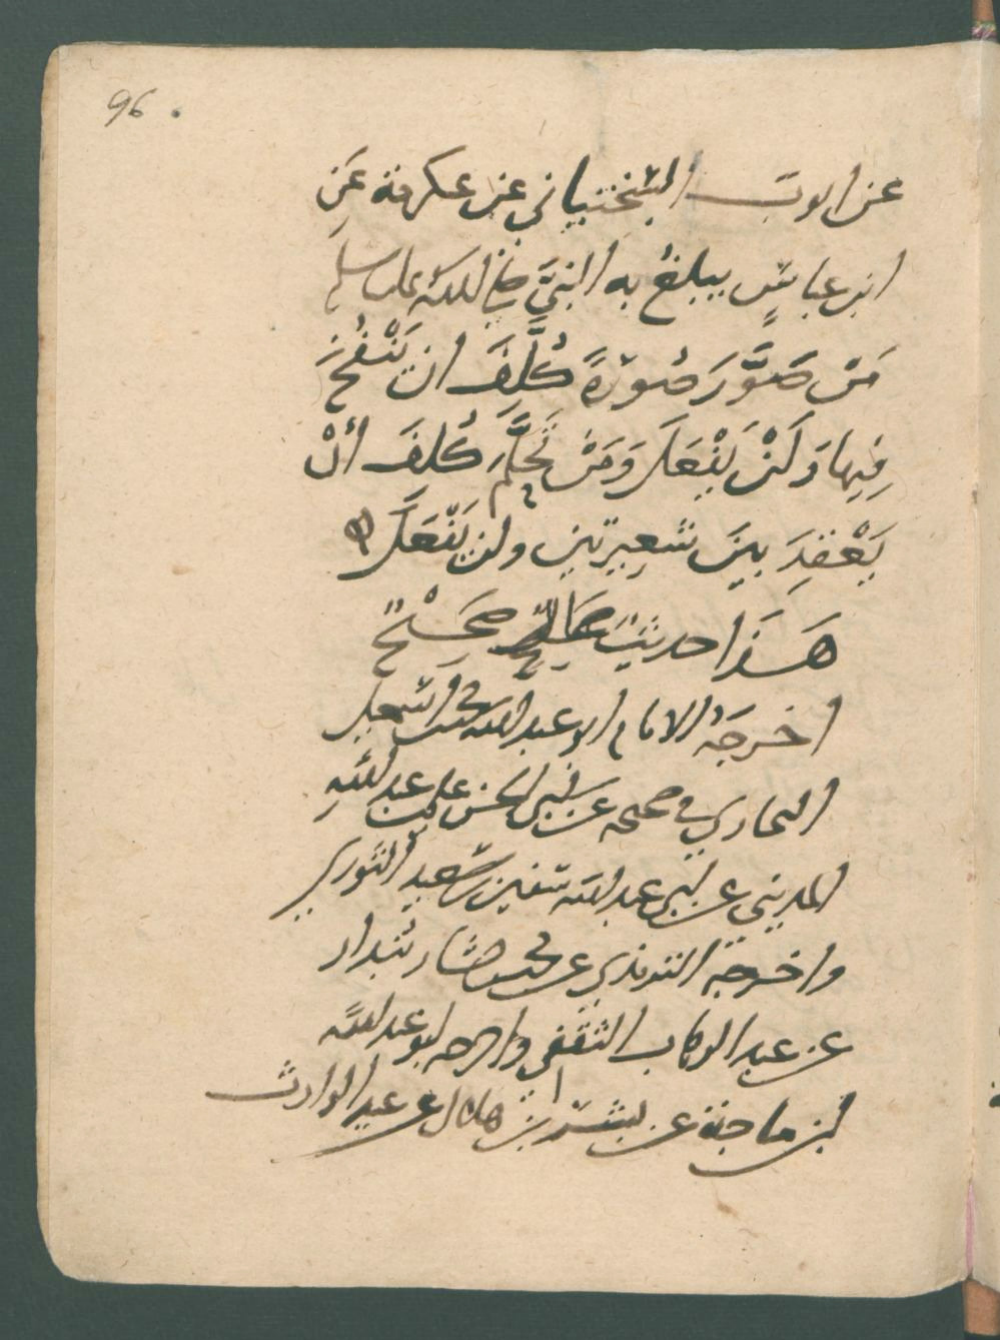 96
عن ايوب السختياني عن عكرمة عَنِ
ابن عباسٍ يبلغُ به النبيَّ صلى الله عليه وسلم
مَنْ صَوَّرَ صُورَةً كُلِّفَ ان يَنْفُخَ
فِيها وَلَنْ يَفْعَلَ وَمَنْ تَحلَّمَ كُلفَ أنْ
يَعْقِدَ بينَ شَعِيرتين ولن يَفْعَلَ
هَذَا حديث صَحِيْحٌ
اخرجَهُ الامام ابو عبد الله محمد بن اسمعيل
البخاري في صحيحه عن ابي الحسن علي بن عبد اللهِ
المديني عن ابي عبد الله سفين بن سعيد الثوري
واخرجه الترمذي عن محمد بن بشار بندار
عن عبد الوهاب الثقفي واخرجه ابو عبد الله
ابن ماجة عن بشر بن هلال عن عبد الوارث